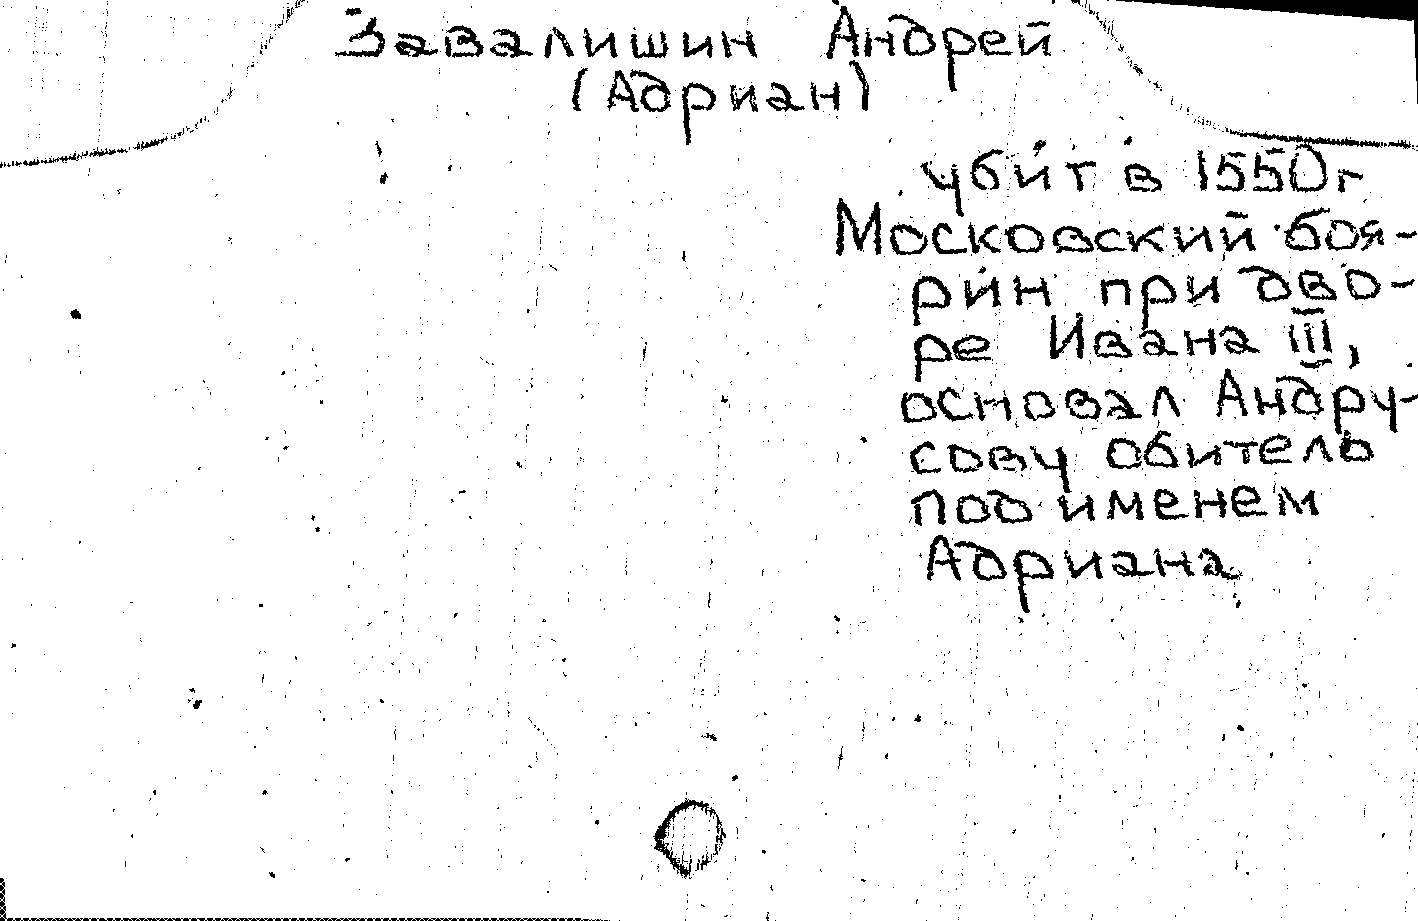 Завалишин Андрей
(Адриан)
убит в 1550г
Московский боя-
рин при дво-
ре Ивана III,
основал Андру-
сову обитель
под именем
Адриана